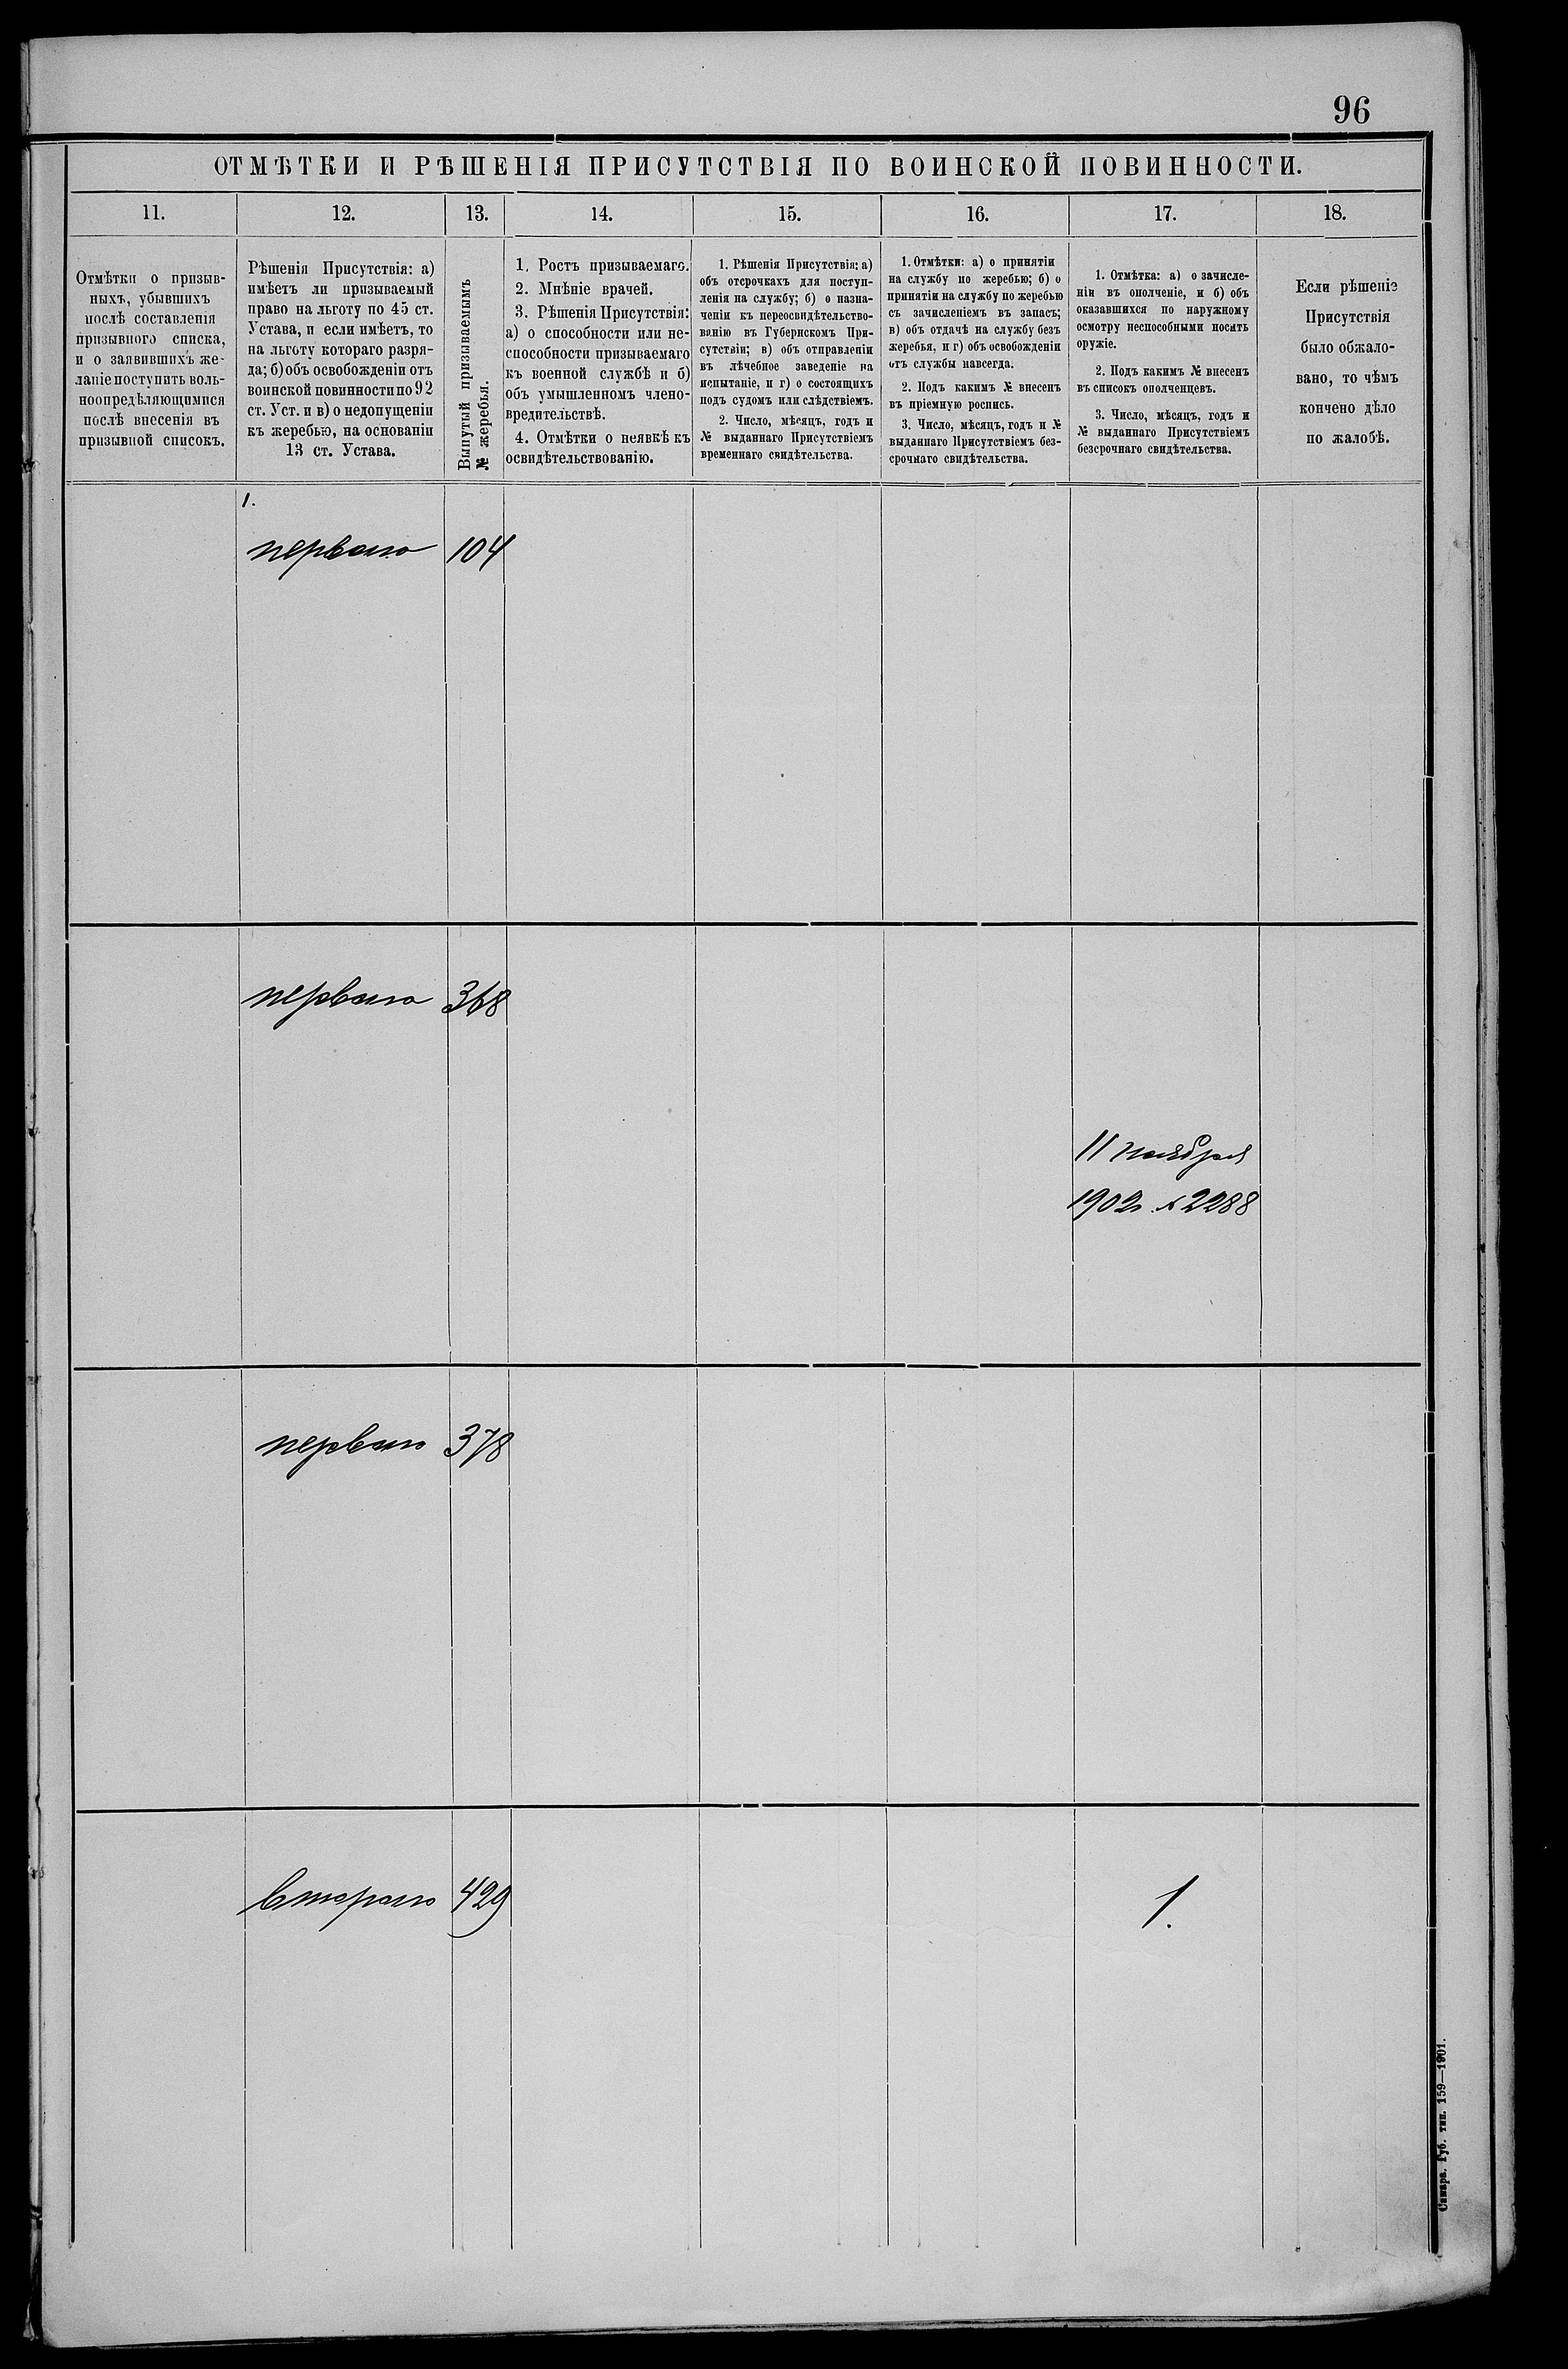 96
ОТМѢТКИ И РѢШЕНІЯ ПРИСУТСТВІЯ ПО ВОИНСКОЙ ПОВИННОСТИ.
11.
12.
13.
14.
15.
16.
17.
18.
Отмѣтки о призыв-
ныхъ, убывшихъ
послѣ составленія
призывного списка,
и о заявившихъ же-
ланіе поступить воль-
ноопредѣляющимися
послѣ внесенія въ
призывной списокъ.
Рѣшенія Присутствія: а)
имѣетъ ли призываемый
право на льготу по 45 ст.
Устава, и если имѣетъ, то
на льготу котораго разря-
да; б) объ освобожденіи отъ
воинской повинности по 92
ст. Уст. и в) о недопущеніи
къ жеребью, на основаніи
13 ст. Устава.
Вынутый призываемымъ
№ жеребья.
1. Ростъ призываемаго.
2. Мнѣніе врачей.
3. Рѣшенія Присутствія:
а) о способности или не-
способности призываемаго
къ военной службѣ и б)
объ умышленномъ члено-
вредительствѣ.
4. Отмѣтки о неявкѣ къ
освидѣтельствованію.
1. Рѣшенія Присутствія: а)
объ отсрочкахъ для поступ-
ленія на службу; б) о назна-
ченіи къ переосвидѣтельство-
ванію въ Губернскомъ При-
сутствіи; в) объ отправленіи
въ лѣчебное заведеніе на
испытаніе, и г) о состоящихъ
подъ судомъ или слѣдствіемъ.
2. Число, мѣсяцъ, годъ и
№ выданнаго Присутствіемъ
временнаго свидѣтельства.
1. Отмѣтки: а) о принятіи
на службу по жеребью; б) о
принятіи на службу по жеребью
съ зачисленіемъ въ запасъ;
в) объ отдачѣ на службу безъ
жеребья, и г) объ освобожденіи
отъ службы навсегда.
2. Подъ какимъ № внесенъ
въ пріемную роспись.
3. Число, мѣсяцъ, годъ и №
выданнаго Присутствіемъ без-
срочнаго свидѣтельства.
1. Отмѣтка: а) о зачисле-
ніи въ ополченіе, и б) объ
оказавшихся по наружному
осмотру неспособными носить
оружіе.
2. Подъ какимъ № внесенъ
въ списокъ ополченцевъ.
3. Число, мѣсяцъ, годъ и
№ выданнаго Присутствіемъ
безсрочнаго свидѣтельства.
Если рѣшеніе
Присутствія
было обжало-
вано, то чѣмъ
кончено дѣло
по жалобѣ.
1.
перваго 104
перваго 368
11 ноября
1902г. № 2288
перваго 378
втораго 429
1.
Самара. Губ. тип. 159—1901.